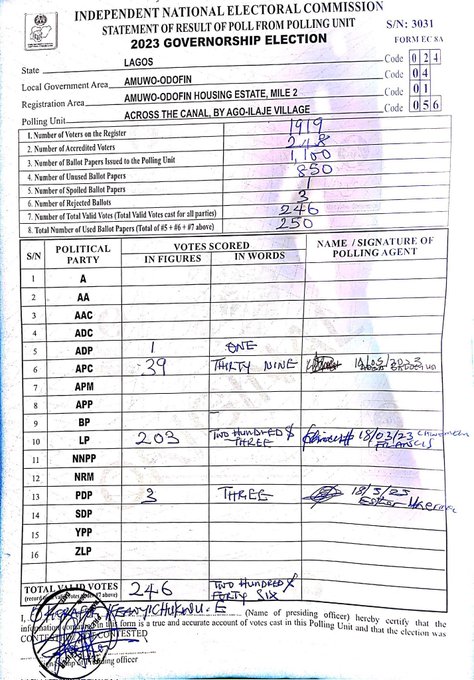 INDEPENDENT NATIONAL ELECTORAL COMMISSION
STATEMENT OF RESULT OF POLL FROM POLLING UNIT
S/N: 3031
2023 GOVERNORSHIP ELECTION
FORM EC 8A
State LAGOS Code 024
Local Government Area AMUWO-ODOFIN Code 04
Registration Area AMUWO-ODOFIN HOUSING ESTATE, MILE 2 Code 01
Polling Unit ACROSS THE CANAL, BY AGO-ILAJE VILLAGE Code 056
1. Number of Voters on the Register 1919
2. Number of Accredited Voters 248
3. Number of Ballot Papers Issued to the Polling Unit 1,100
4. Number of Unused Ballot Papers 850
5. Number of Spoiled Ballot Papers 1
6. Number of Rejected Ballots 3
7. Number of Total Valid Votes (Total Valid Votes cast for all parties) 246
8. Total Number of Used Ballot Papers (Total of #5 + #6 + #7 above) 250
S/N POLITICAL PARTY VOTES SCORED NAME / SIGNATURE OF POLLING AGENT
IN FIGURES IN WORDS
1 A
2 AA
3 AAC
4 ADC
5 ADP 1 ONE
6 APC 39 THIRTY NINE
7 APM
8 APP
9 BP
10 LP 203 TWO HUNDRED & THREE 18/03/23 FRANCIS
11 NNPP
12 NRM
13 PDP 3 THREE 18/3/23 Esther
14 SDP
15 YPP
16 ZLP
TOTAL VALID VOTES 246 TWO HUNDRED & FORTY SIX
I, (Name of presiding officer) hereby certify that the
information contained in this form is a true and accurate account of votes cast in this Polling Unit and that the election was
CONTESTED
officer